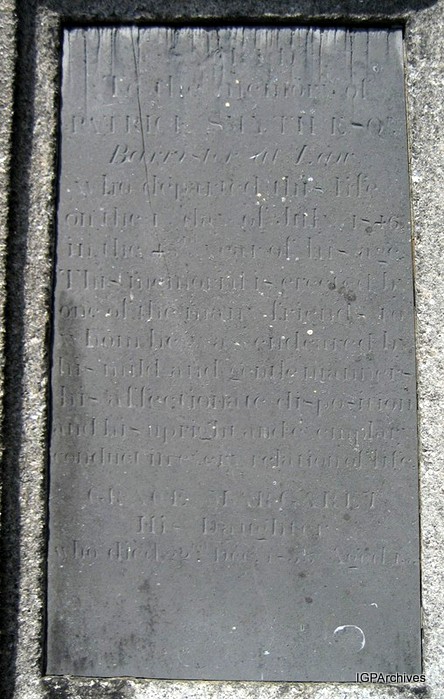 To the memory of
PATRICK SMYTH ESQ.
Barrister at Law
who departed this life
on the day of July 1846
in the 48 year of his age.
This monument is erected by
one of the many friends to
whom he was endeared by
his mild and gentle manners
his affectionate disposition
and his upright and exemplary
conduct in every relation of life
GRACE MARGARET
His Daughter
who died
IGPArchives